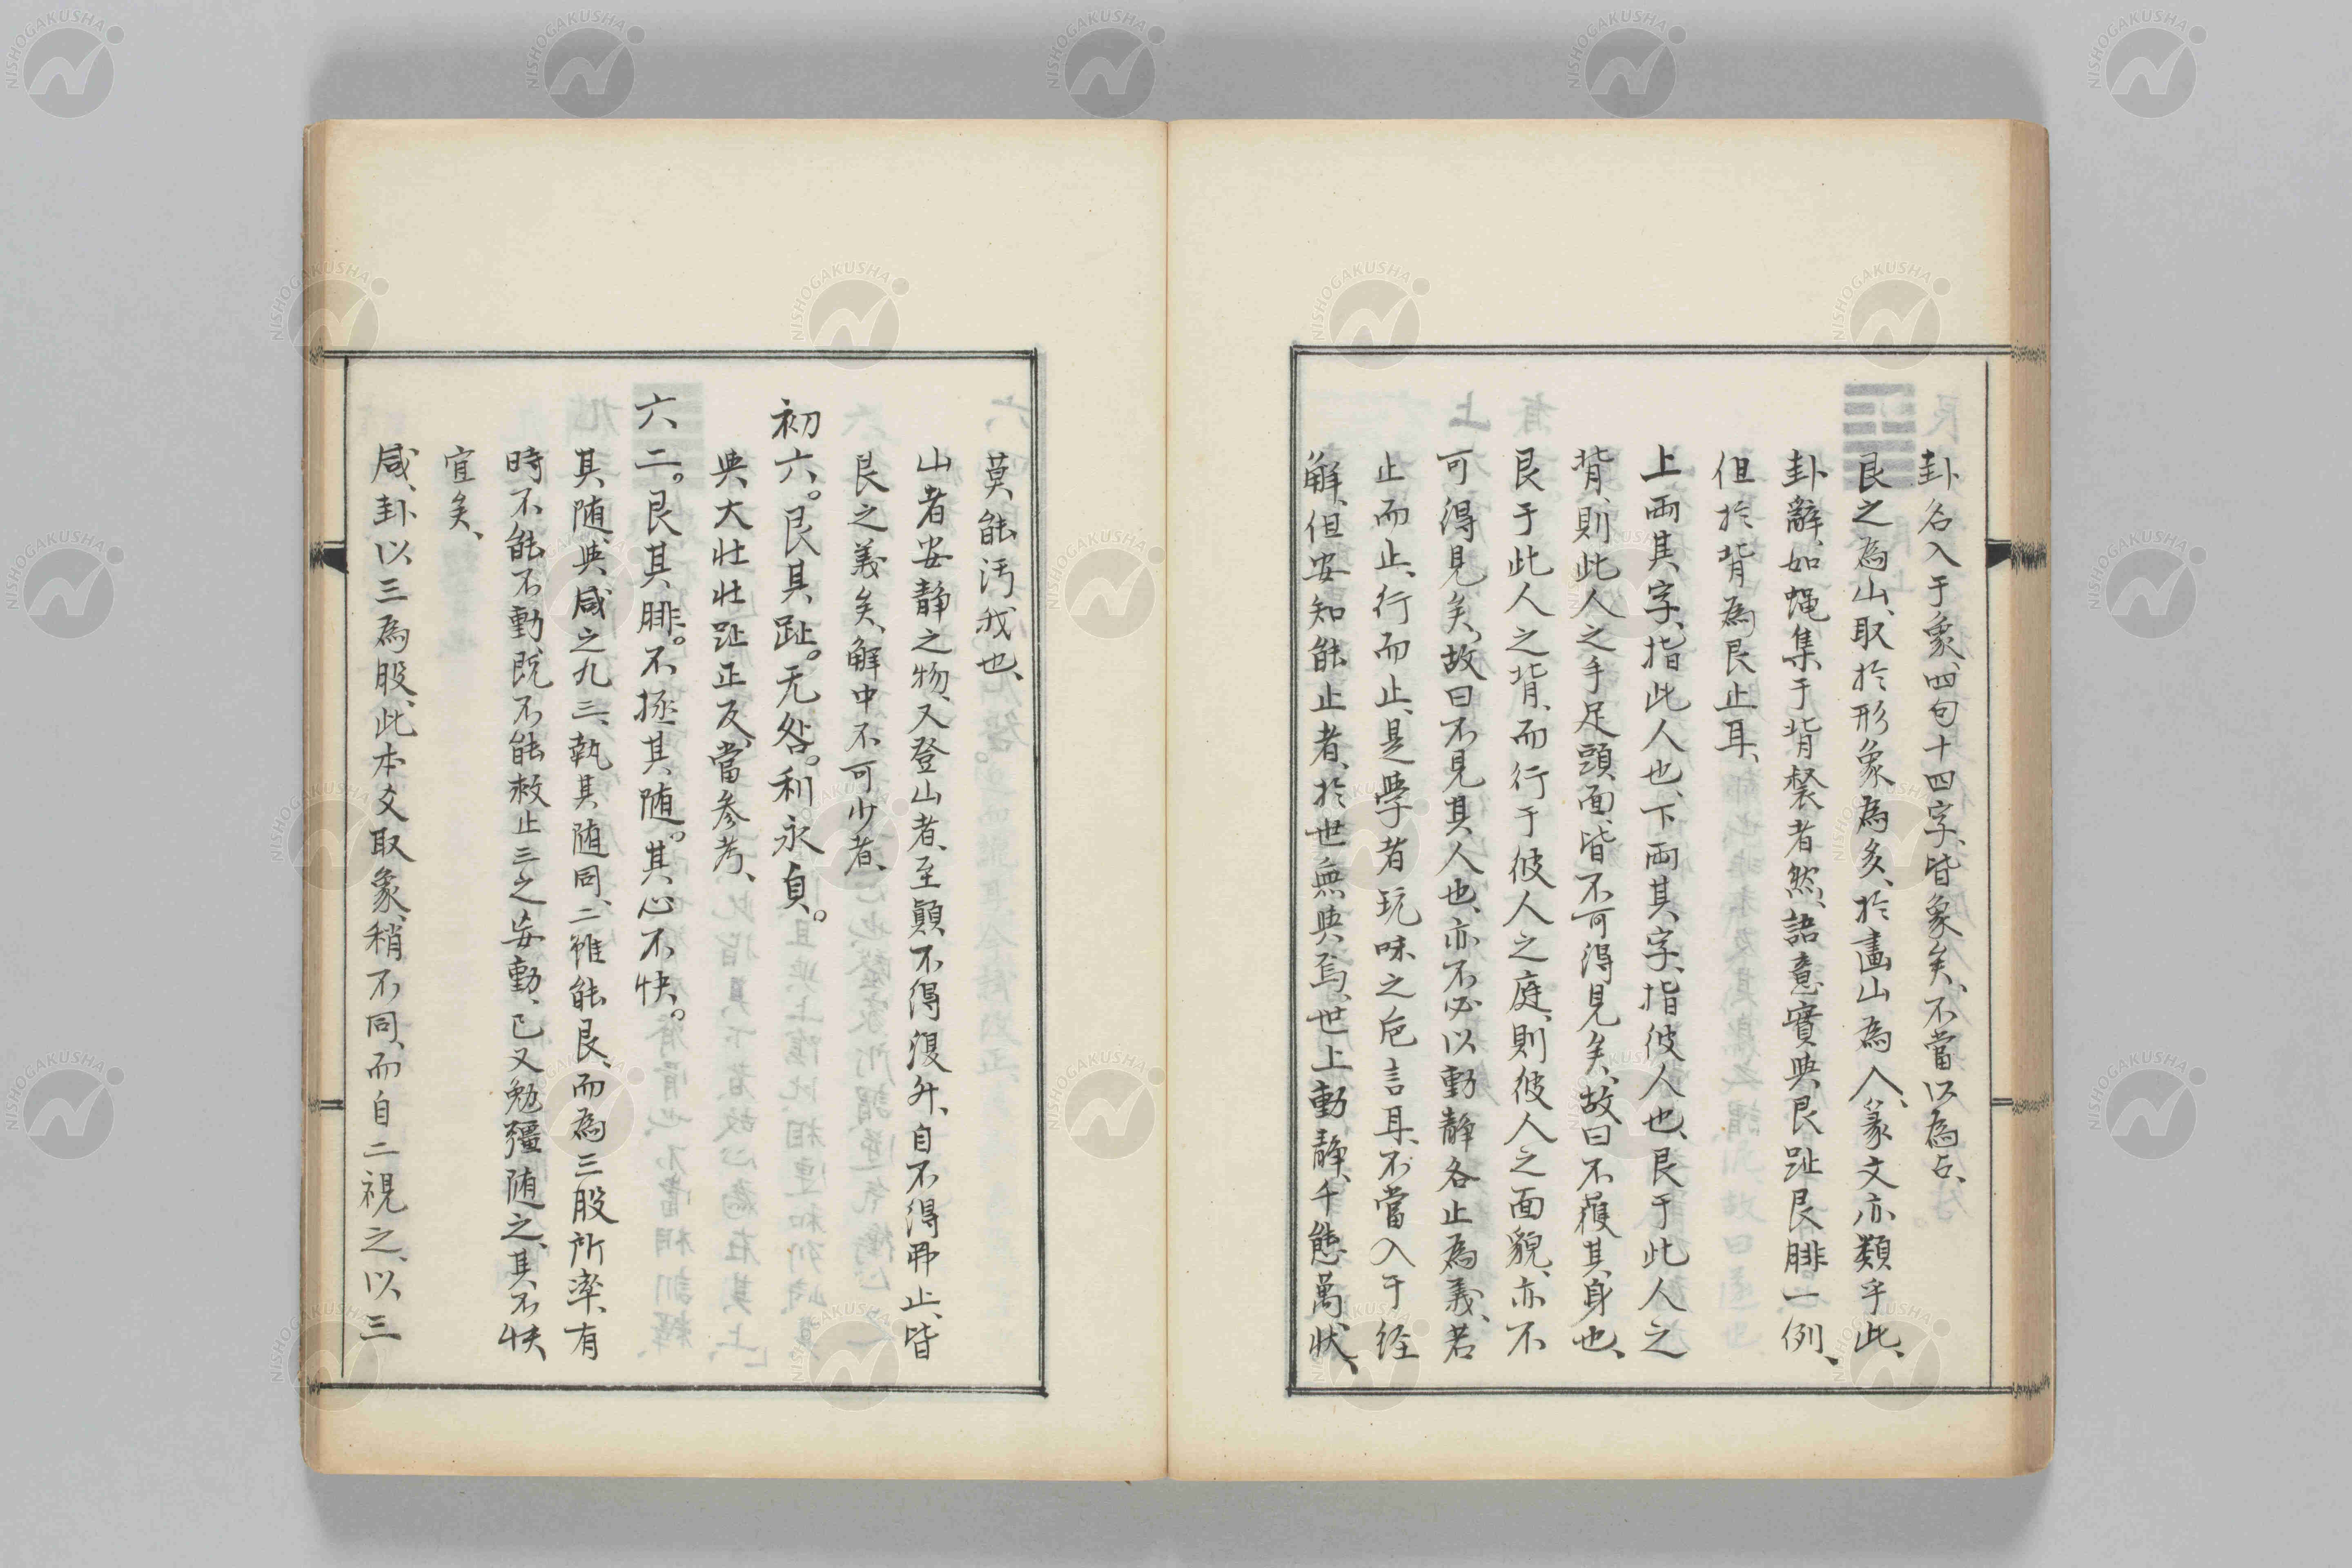 卦名入于象、四句十四字、皆象矣、不當以為占、
艮之為山、取於形象為多、於畫山為入、篆文亦類乎此、
卦辭、如蠅集于背褧者然、語意實與艮趾艮腓一例、
但於背為艮止耳、
上兩其字、指此人也、下兩其字、指彼人也、艮于此人之
背、則此人之手足頭面、皆不可得見矣、故曰不獲其身也、
艮于此人之背、而行于彼人之庭、則彼人之面貌、亦不
可得見矣、故曰不見其人也、亦不必以動靜各止為義、若
止而止、行而止、是學者玩味之卮言耳、不當入于経
解、但安知能止者、於世無與焉、世上動靜、千態萬狀、
莫能污我也、
山者安靜之物、又登山者、至顛不得復升、自不得弗止、皆
艮之義矣、解中不可少者、
初六。艮其趾。无咎。利永貞。
與大壯壯趾正反、當参考、
六二。艮其腓。不拯其随。其心不快。
其随、與咸之九三、執其随同、二雖能艮、而為三股所率、有
時不能不動、既不能救止三之妄動、已又勉彊随之、其不快
宜矣、
咸卦以三為股、此本爻取象、稍不同、而自二視之、以三